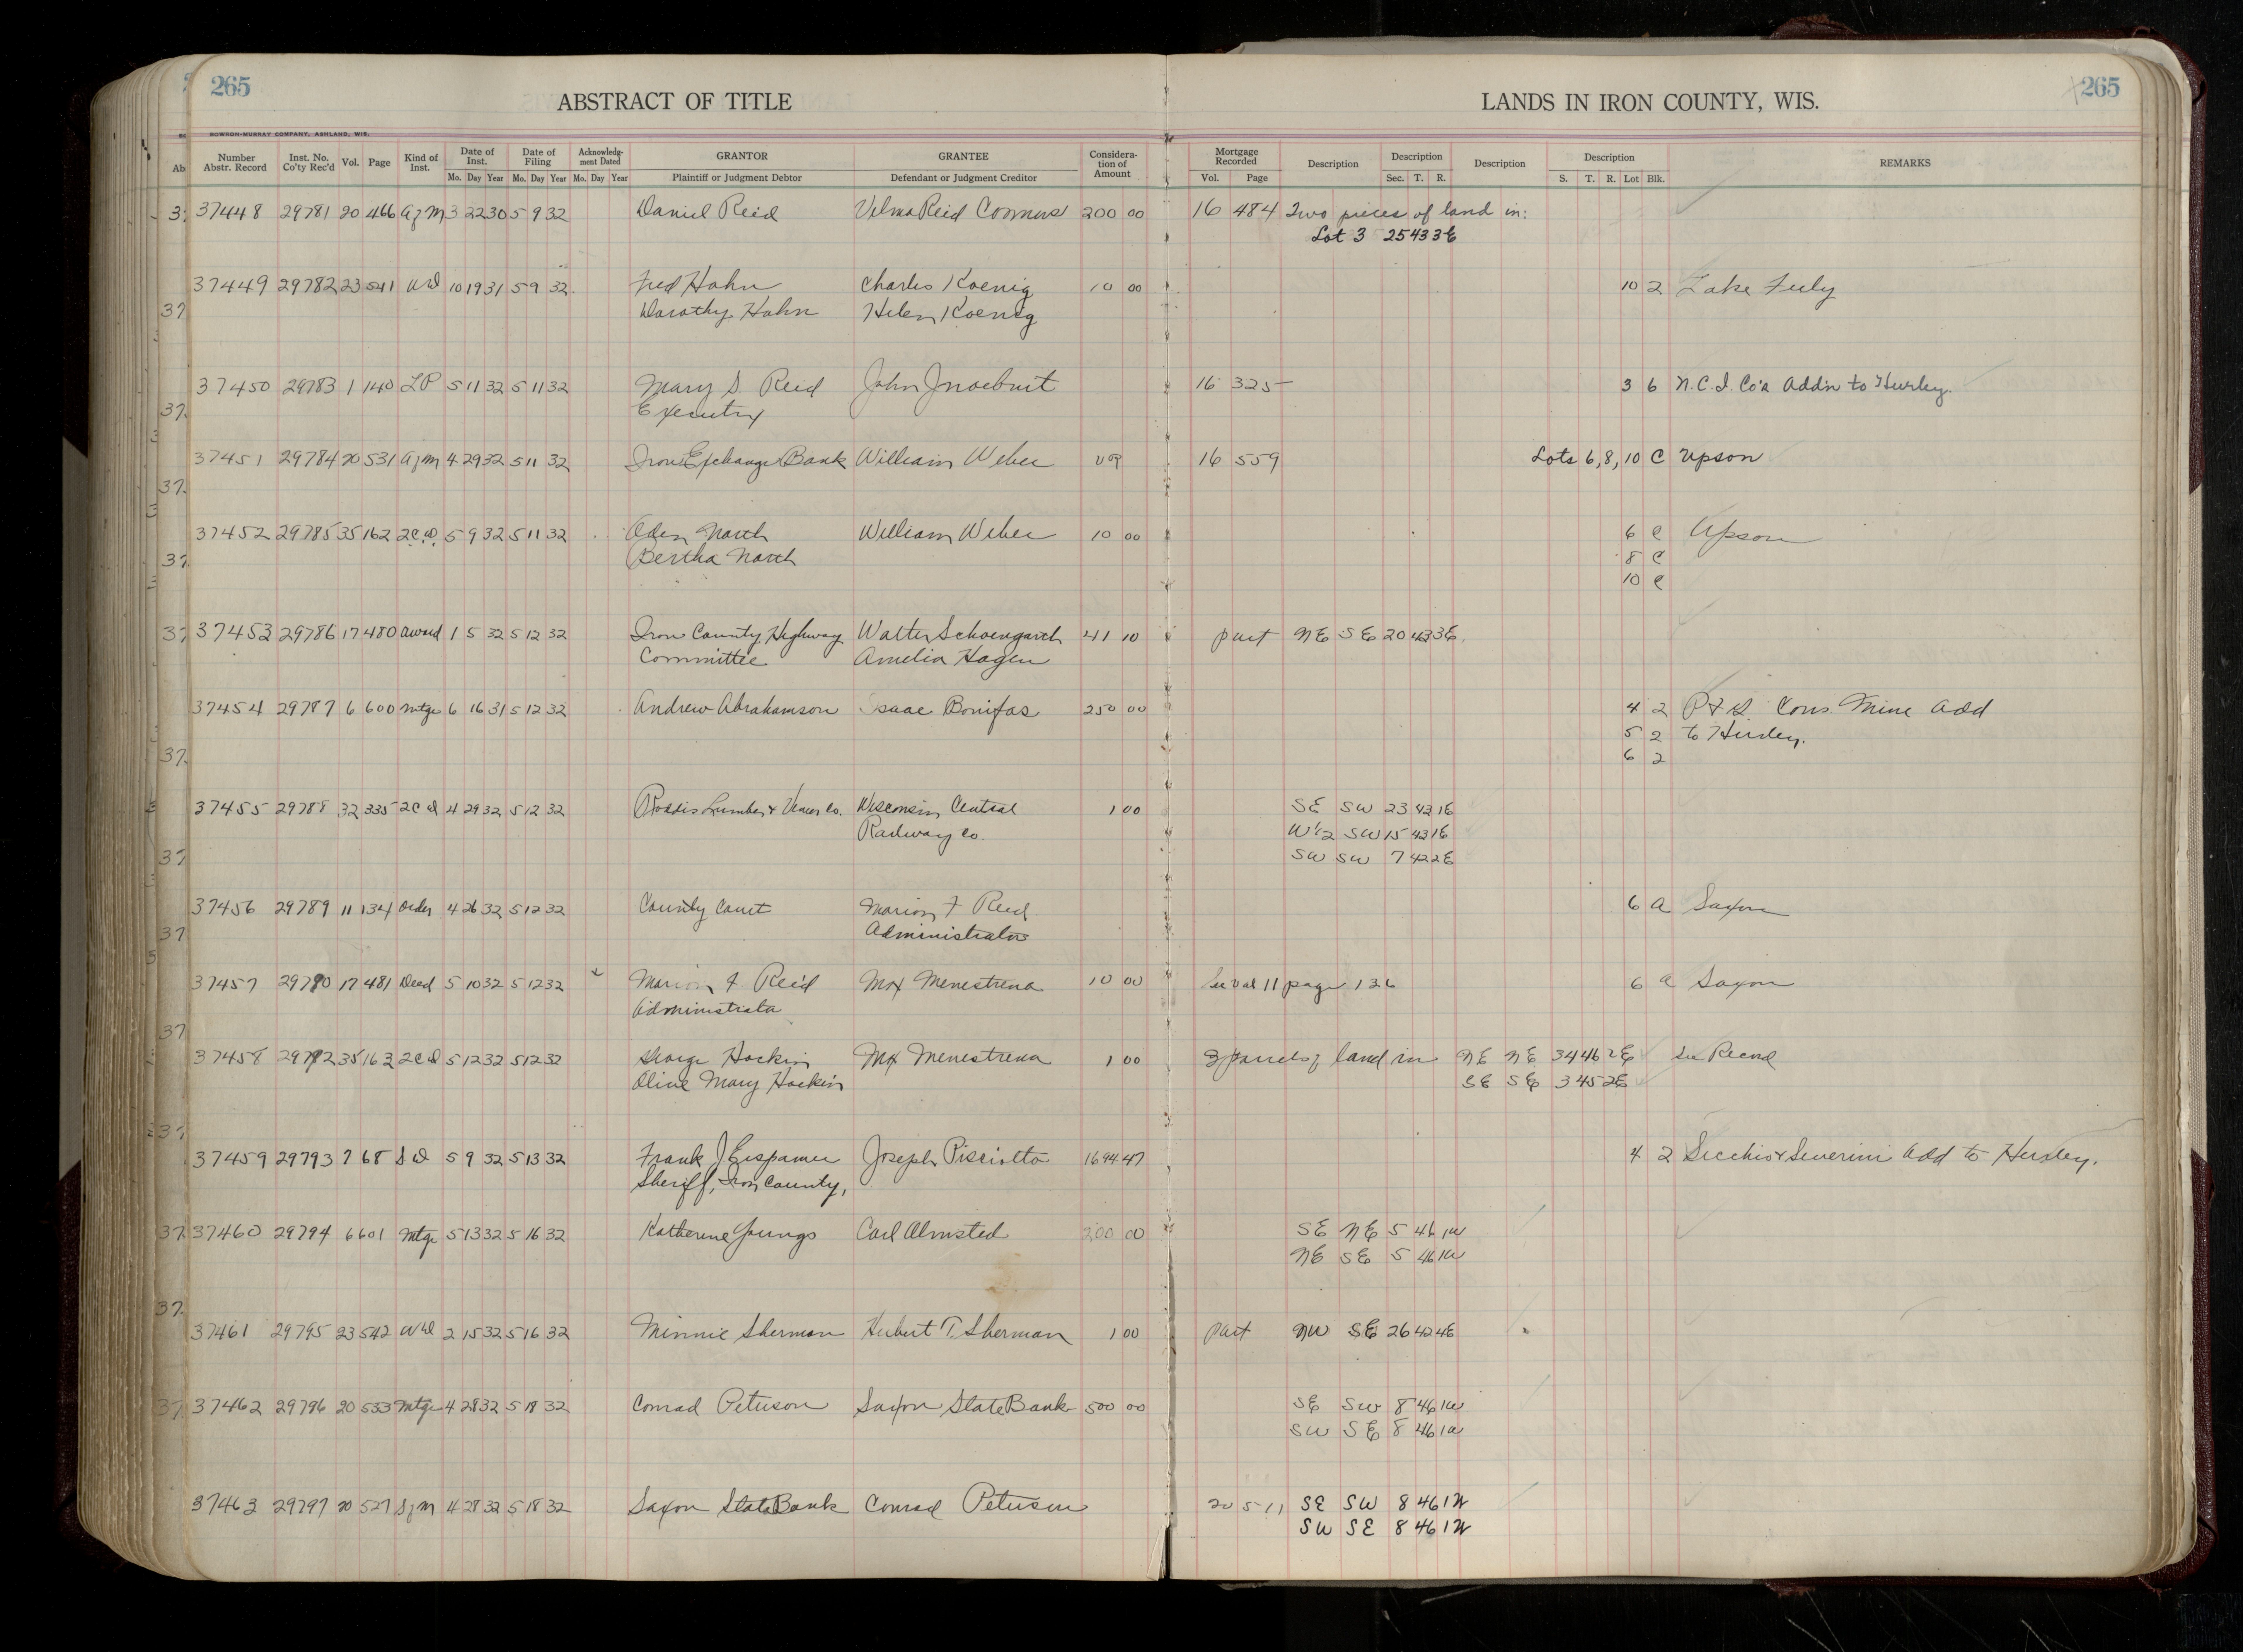 265
265
ABSTRACT OF TITLE
LANDS IN IRON COUNTY, WIS.
BOWRON-MURRAY COMPANY, ASHLAND, WIS.
Number Abstr. Record Inst. No. Co'ty Rec'd Vol. Page Kind of Inst. Date of Inst. Mo. Day Year Date of Filing Mo. Day Year Acknowledg-ment Dated Mo. Day Year GRANTOR Plaintiff or Judgment Debtor GRANTEE Defendant or Judgment Creditor Considera-tion of Amount Mortgage Recorded Vol. Page Description Description Sec. T. R. Description Description S. T. R. Lot Blk. REMARKS
37448 29781 20 466 Azm 3 22 30 5 9 32 Daniel Reid Velma Reid 200 00 16 484 Two pieces of land in:
Lot 3 25 43 3E
37449 29782 23 541 WD 10 19 31 5 9 32 Fred Hahn Charles Koenig 10 00 10 2 Lake
Dorothy Hahn Helen Koenig
37450 29783 1 140 LP 5 11 32 5 11 32 Mary S Reid John 16 325 3 6 N.C.I. Co's Addn to Hurley.
Executrix
37451 29784 20 531 Azm 4 29 32 5 11 32 Iron Exchange Bank William Weber 16 559 Lots 6, 8, 10 C Upson
37452 29785 35 162 2CD 5 9 32 5 11 32 Oden North William Weber 10 00 6 C Upson
Bertha North 8 C
10 C
37453 29786 17 480 Award 1 5 32 5 12 32 Iron County Highway Walter Schoengarth 41 10 part NE SE 20 43 3E
Committee Amelia Hagen
37454 29787 6 600 Mtge 6 16 31 5 12 32 Andrew Abrahamson Isaac Bonifas 250 00 4 2 Cons. Mine Add
5 2 to Hurley.
6 2
37455 29788 32 335 2CD 4 29 32 5 12 32 Roddis Lumber & Veneer Co. Wisconsin Central 1 00 SE SW 23 43 1E
Railway Co. W½ SW 15 43 1E
SW SW 7 42 2E
37456 29789 11 134 Order 4 26 32 5 12 32 County Court Marion F Reid 6 A Saxon
Administrator
37457 29790 17 481 Deed 5 10 32 5 12 32 Marion F. Reid Max Menestrina 10 00 See Vol 11 page 136 6 A Saxon
Administrator
37458 29792 35 163 2CD 5 12 32 5 12 32 George Hockin Max Menestrina 1 00 3 parcels of land in NE NE 34 46 2E See Record
Olive Mary Hockin SE SE 3 45 2E
37459 29793 7 68 SD 5 9 32 5 13 32 Frank J Erspamer Joseph Pisciotta 1694 47 4 2 Secchio & Severini Add to Hurley.
Sheriff, Iron County,
37460 29794 6 601 Mtge 5 13 32 5 16 32 Katherine Youngs Carl Olmsted 200 00 SE NE 5 46 1W
NE SE 5 46 1W
37461 29795 23 542 WD 2 15 32 5 16 32 Minnie Sherman Hubert T. Sherman 1 00 part NW SE 26 42 4E
37462 29796 20 533 Mtge 4 28 32 5 18 32 Conrad Peterson Saxon State Bank 500 00 SE SW 8 46 1W
SW SE 8 46 1W
37463 29797 20 527 Szm 4 28 32 5 18 32 Saxon State Bank Conrad Peterson 20 511 SE SW 8 46 1W
SW SE 8 46 1W